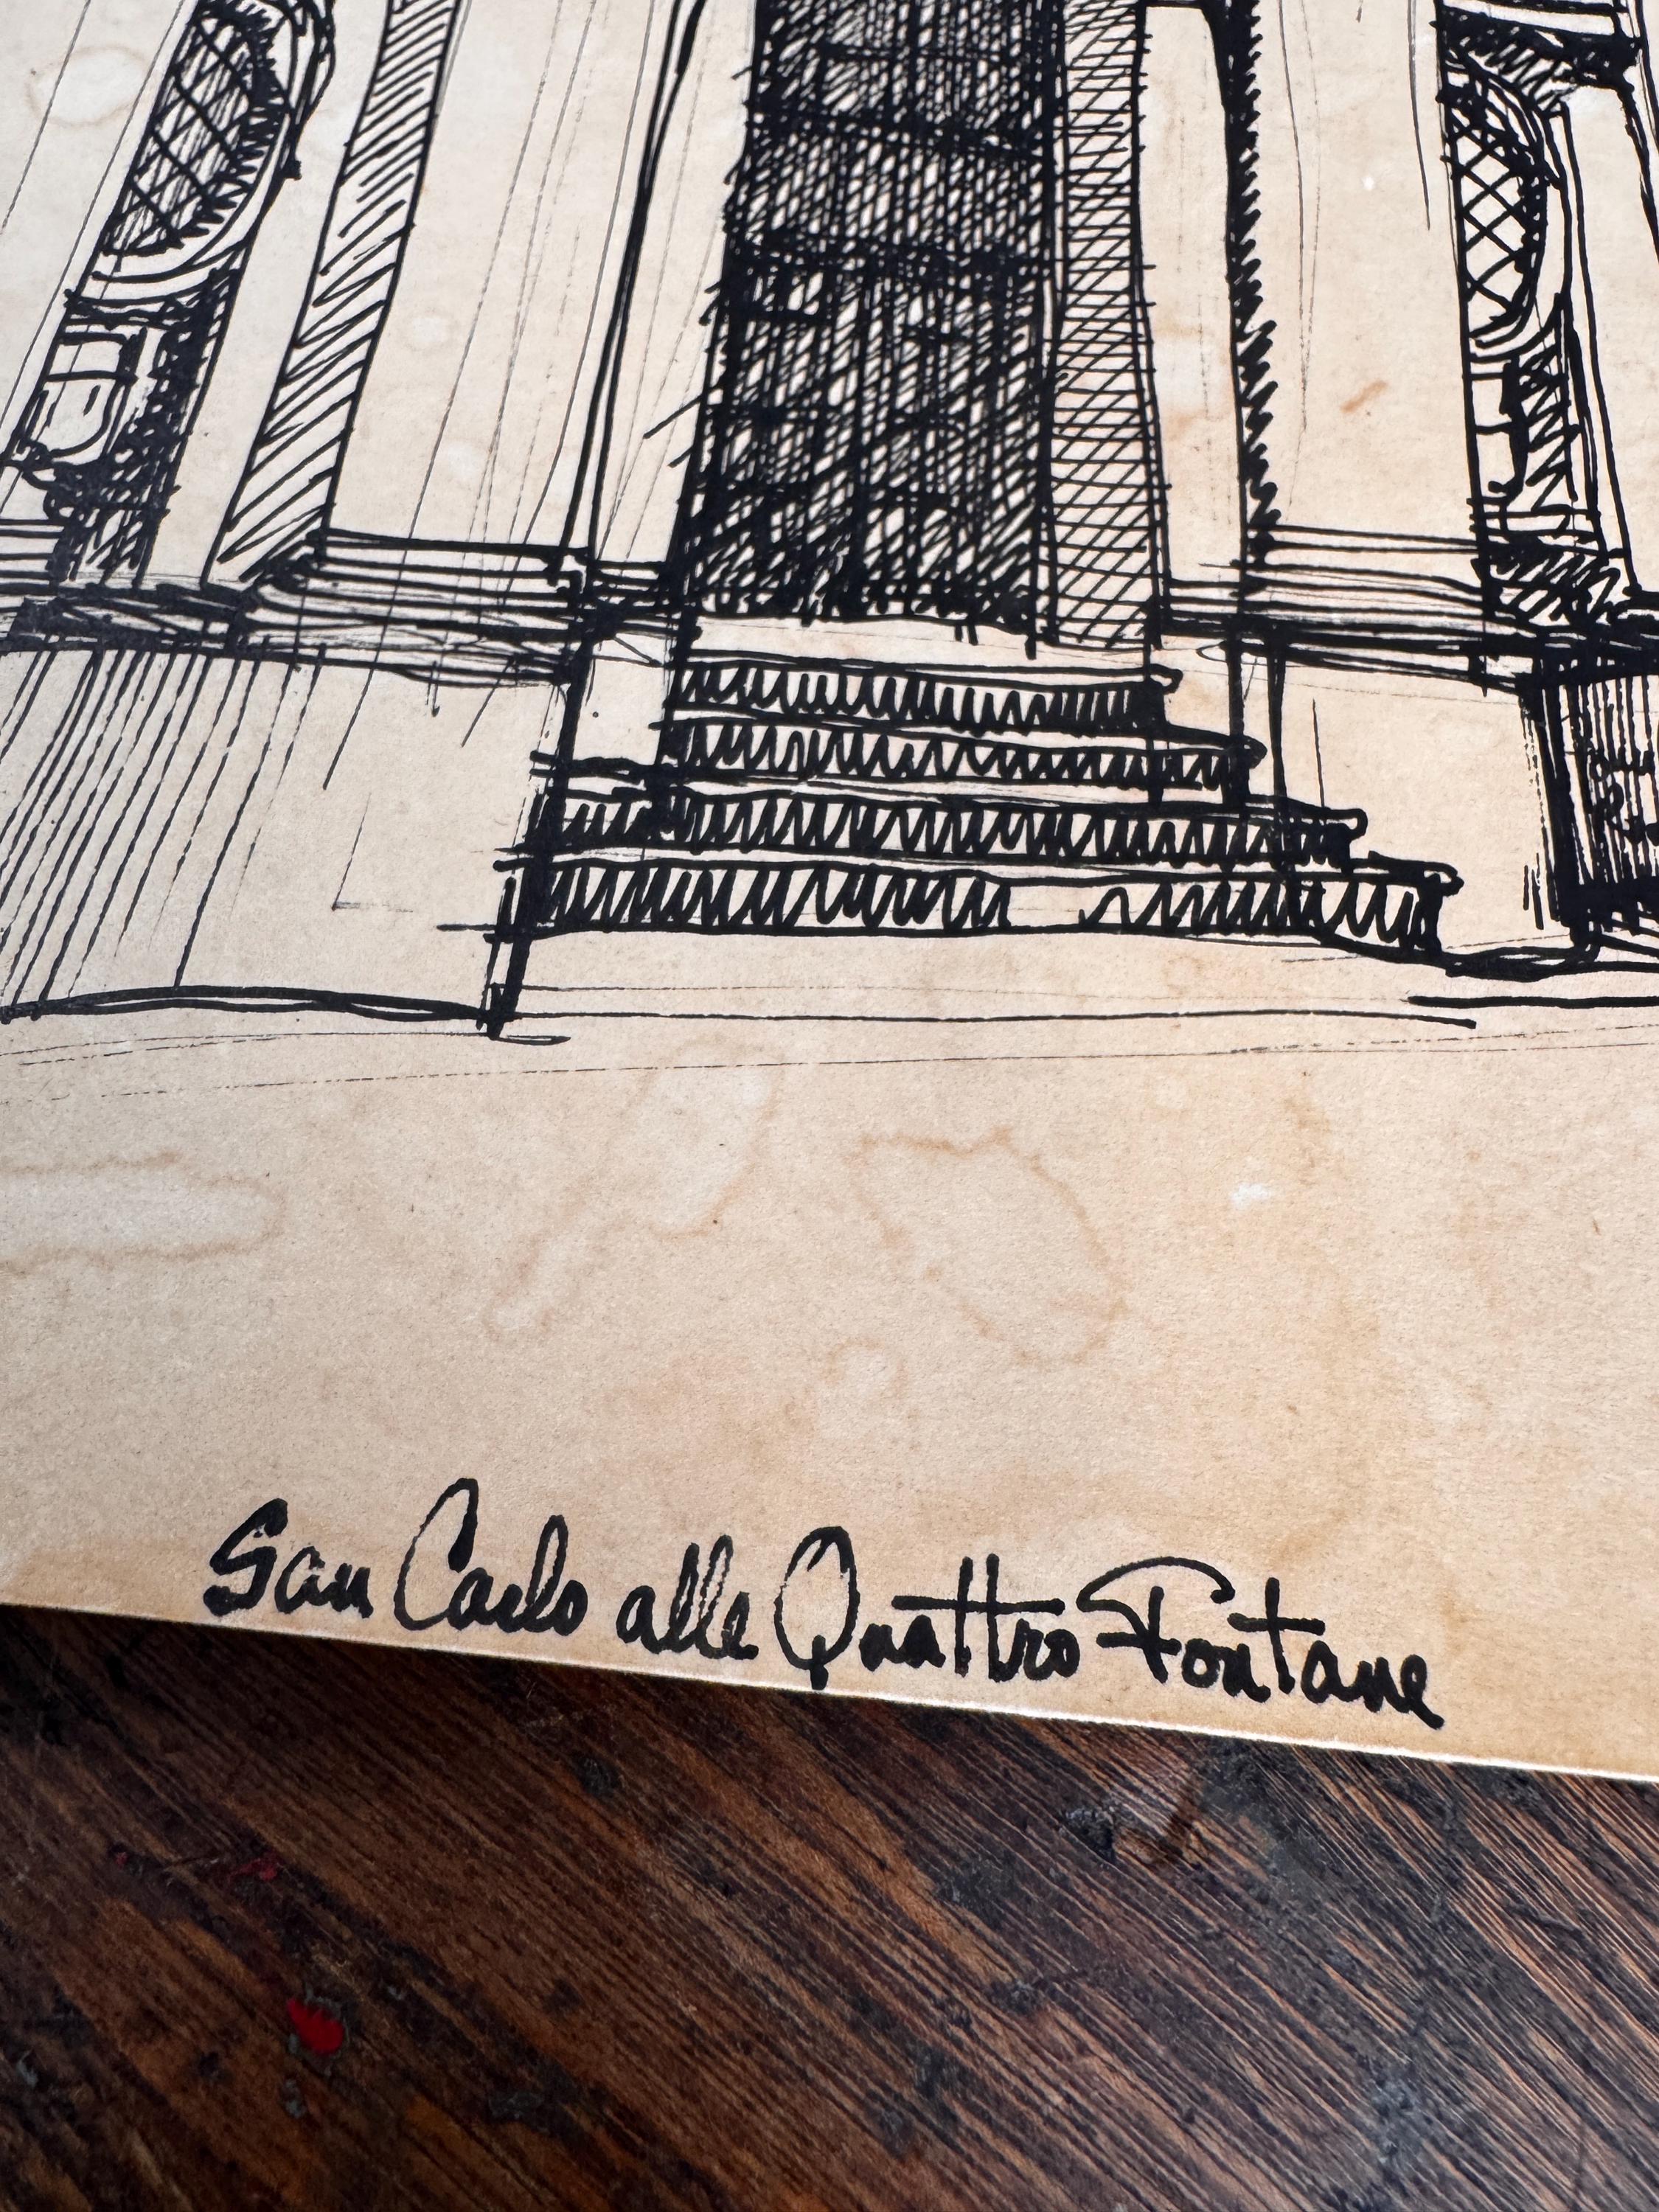 San Carlo alle Quattro Fontane